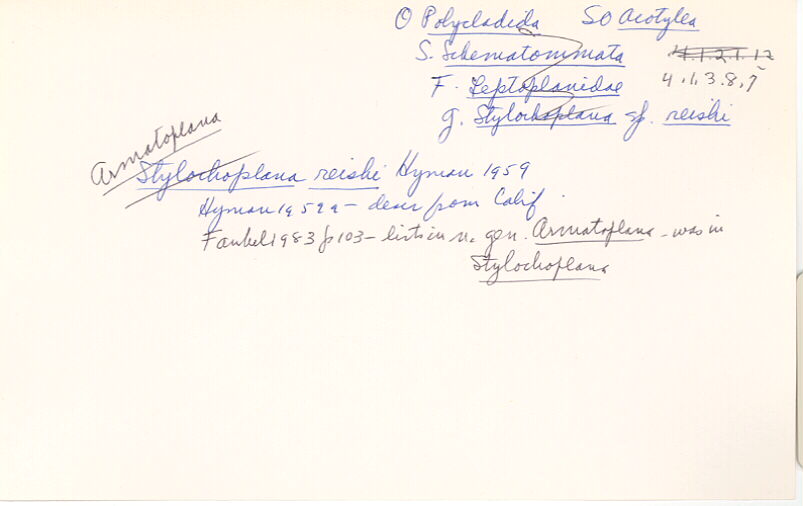 O Polycladida SO Acotylea
S. Schematommata 4.1.2.1.12
F. Leptoplanidae 4.1.3.8.9
g. Stylochoplana sp. reishi
Armatoplana
Stylochoplana reishi Hyman 1959
Hyman 1959a - descr from Calif.
Faubel 1983 p103 - lists in n. gen. Armatoplana - was in
Stylochoplana